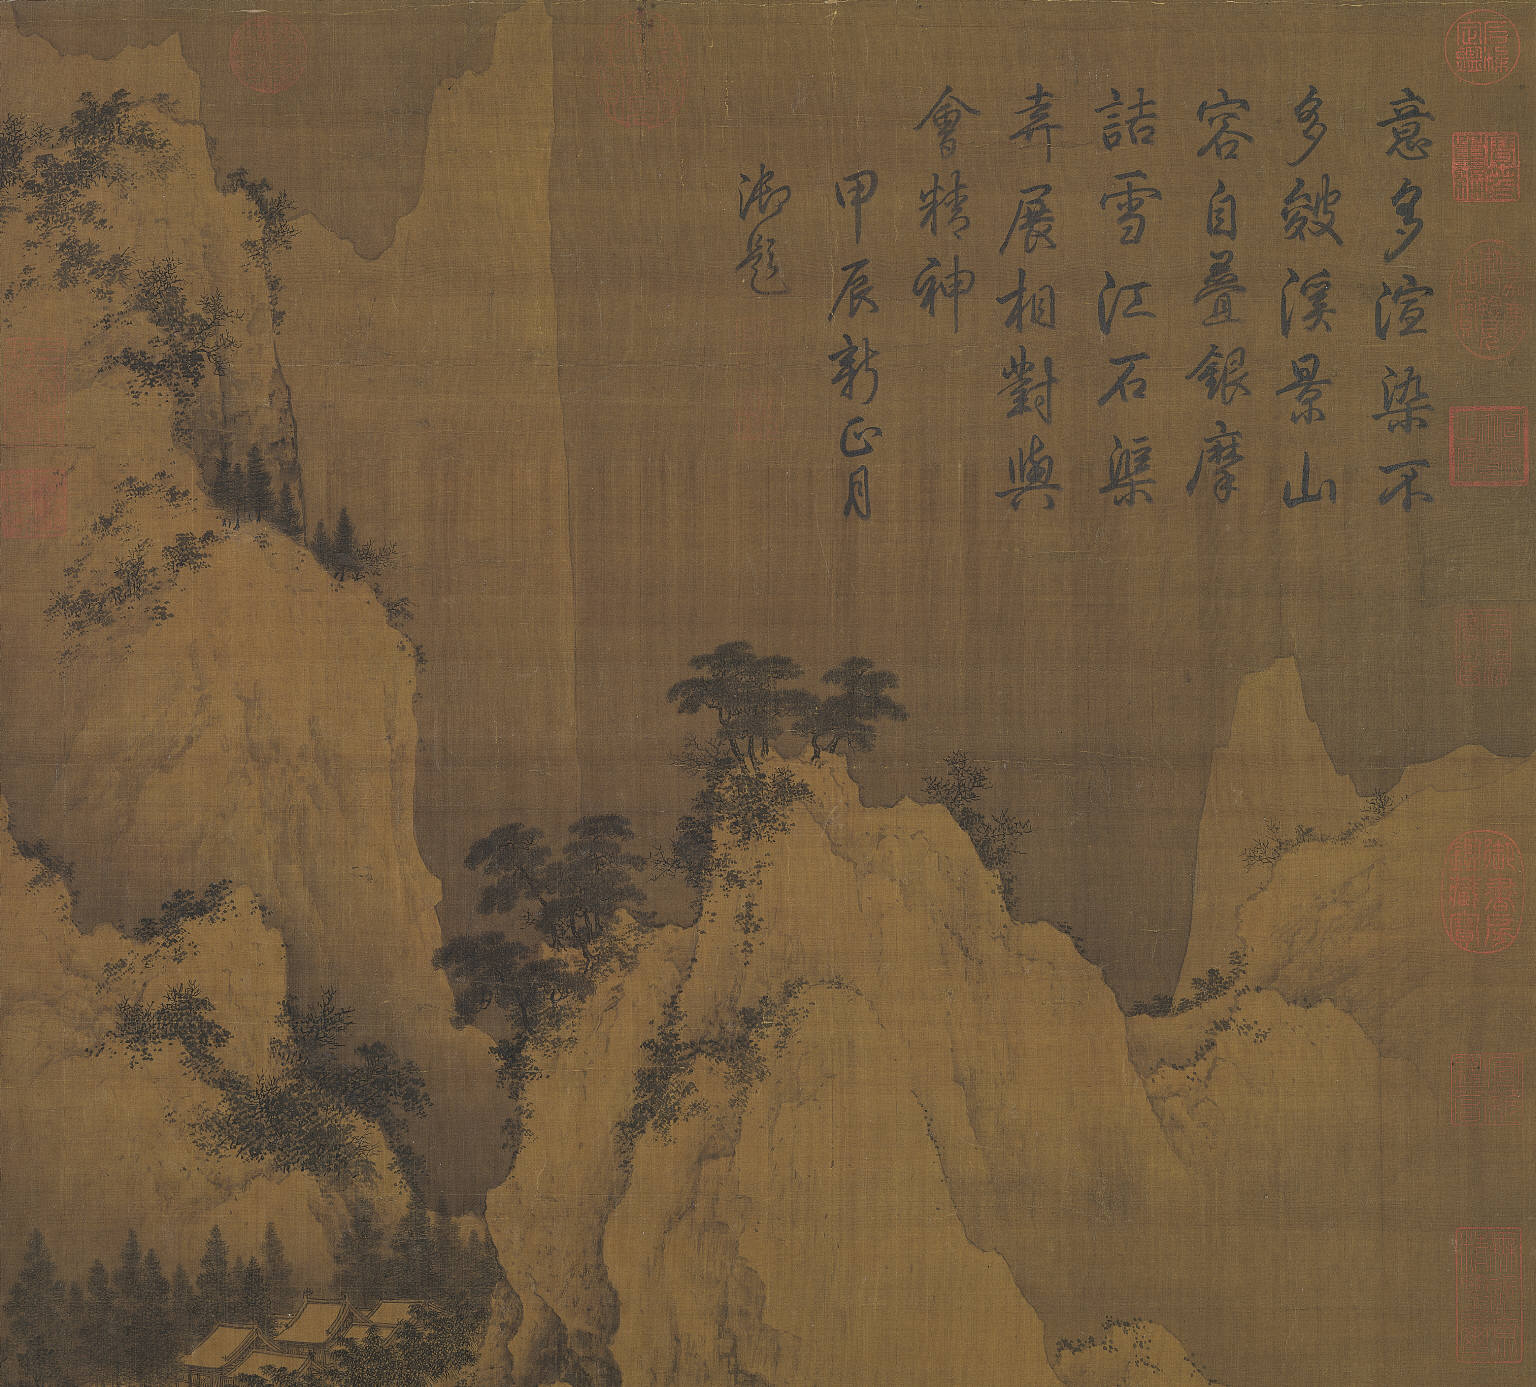 意多渲染不
多皴溪景山
容自叠銀摩
詰雪江石渠
弆展相對與
會精神
甲辰新正月
御題